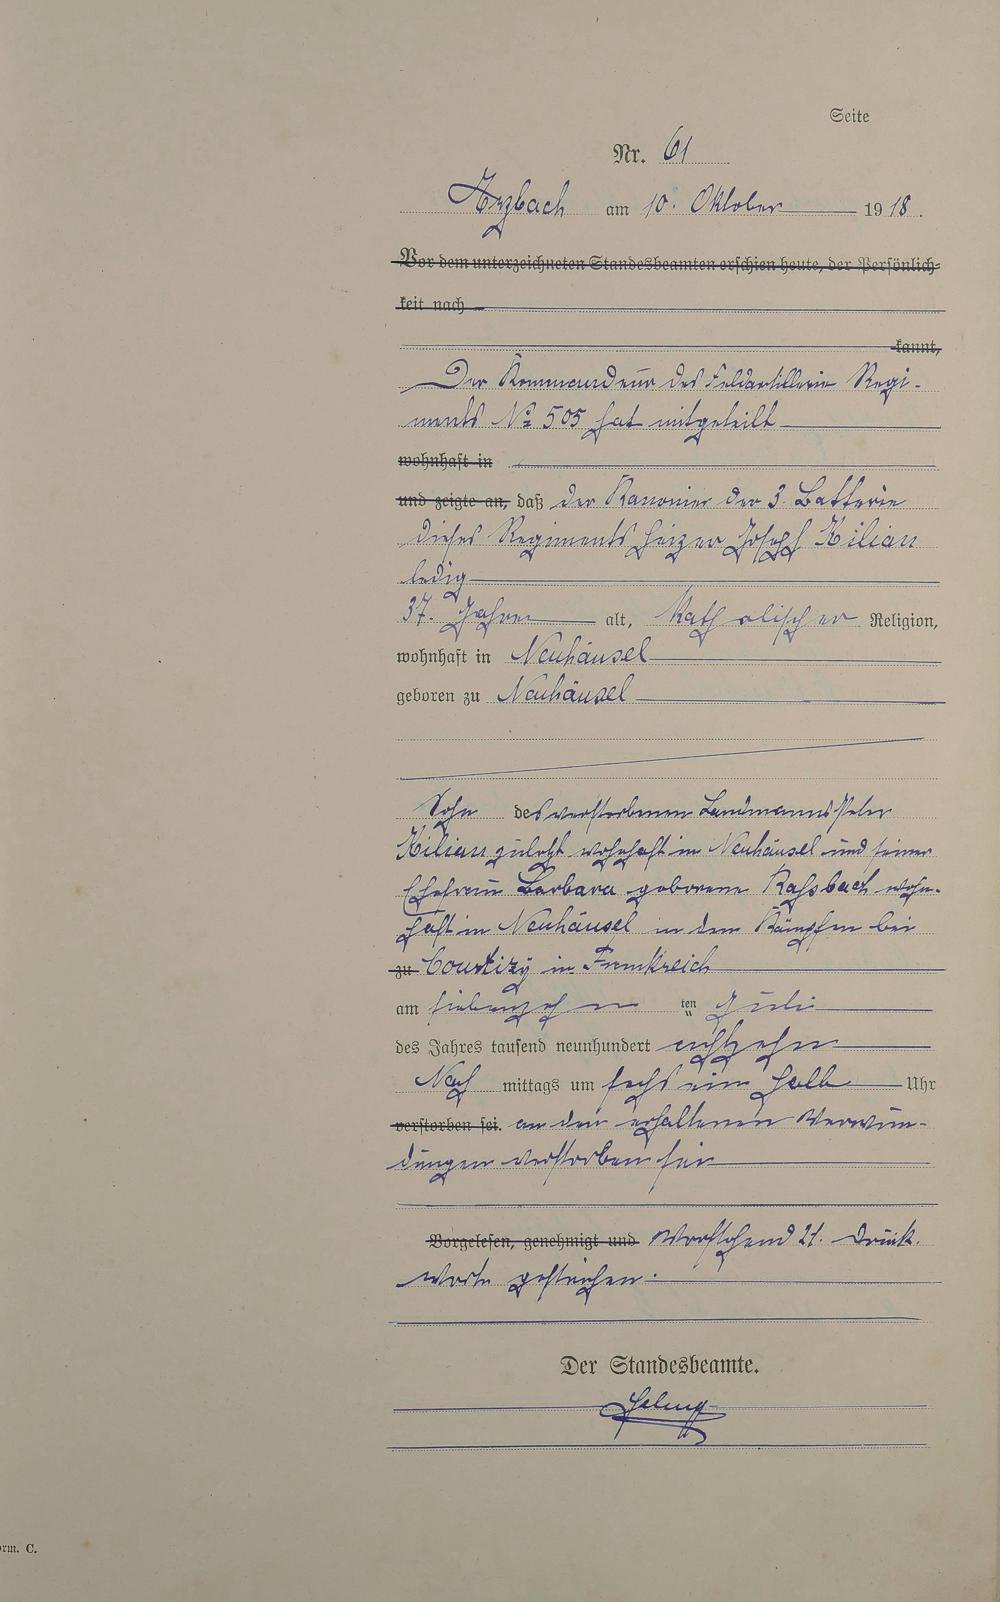 Seite
Nr. 61
Arzbach am 10. Oktober 1918.
Vor dem unterzeichneten Standesbeamten erschien heute, der Persönlich-
keit nach
kannt,
Der Kommandeur des Feldartillerie Regi-
ments No 505 hat mitgeteilt
wohnhaft in
und zeigte an, daß der Kanonier der 3. Batterie
dieses Regiments Heizer Joseph Kilian
ledig
37. Jahre alt, katholischer Religion,
wohnhaft in Neuhäusel
geboren zu Neuhäusel
Sohn des verstorbenen Landmanns Peter
Kilian zuletzt wohnhaft in Neuhäusel und seiner
Ehefrau Barbara geborene Rahsbach wohn-
haft in Neuhäusel in den Kämpfen bei
zu Courtizy in Frankreich
am siebenzehnten Juli
des Jahres tausend neunhundert achtzehn
Nachmittags um sechs ein halb Uhr
verstorben sei. an den erhaltenen Verwun-
dungen verstorben sei
Vorgelesen, genehmigt und Vorstehend 21. Druck-
worte gestrichen.
Der Standesbeamte.
orm. C.